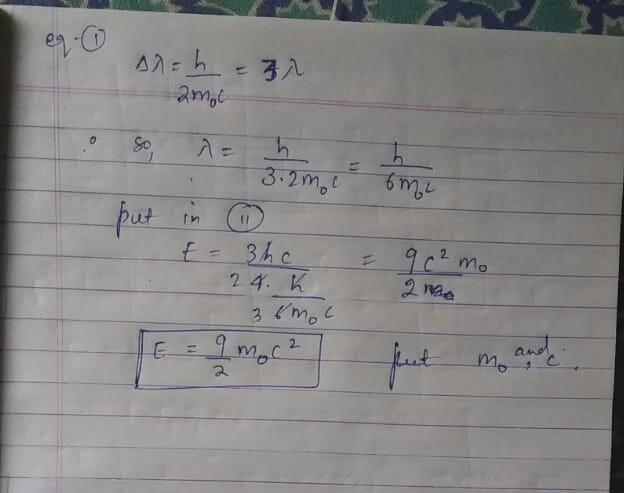 eq-①
Δλ = h/2m₀c = 3λ
∴ so, λ = h/3·2m₀c = h/6m₀c
put in ⑪
E = 3hc/(4·h/6m₀c) = 9c²m₀/2
2 3
E = 9/2 m₀c² put m₀ and c.